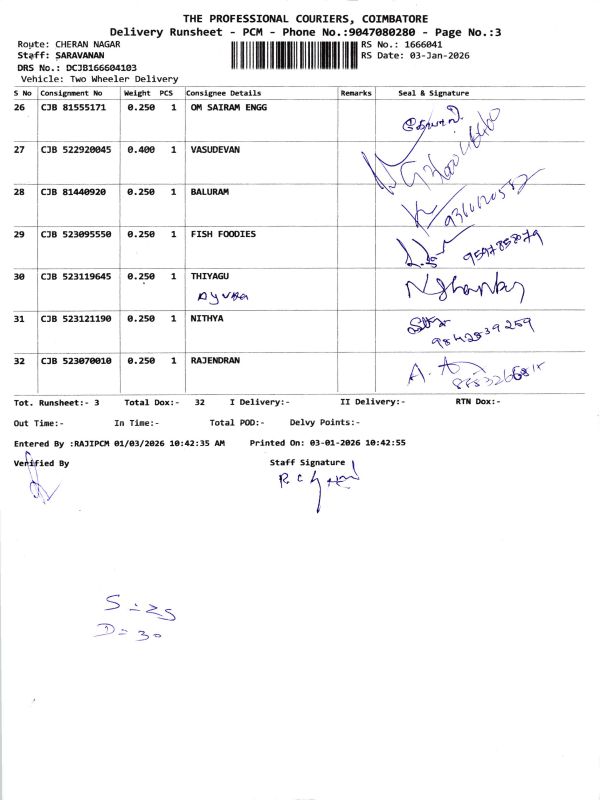 THE PROFESSIONAL COURIERS, COIMBATORE
Delivery Runsheet - PCM - Phone No.:9047080280 - Page No.:3
Route: CHERAN NAGAR RS No.: 1666041
Staff: SARAVANAN RS Date: 03-Jan-2026
DRS No.: DCJB166604103
Vehicle: Two Wheeler Delivery
S No Consignment No Weight PCS Consignee Details Remarks Seal & Signature
26 CJB 81555171 0.250 1 OM SAIRAM ENGG
27 CJB 522920045 0.400 1 VASUDEVAN
28 CJB 81440920 0.250 1 BALURAM
29 CJB 523095550 0.250 1 FISH FOODIES
30 CJB 523119645 0.250 1 THIYAGU
31 CJB 523121190 0.250 1 NITHYA
9842839259
32 CJB 523070010 0.250 1 RAJENDRAN
Tot. Runsheet:- 3 Total Dox:- 32 I Delivery:- II Delivery:- RTN Dox:-
Out Time:- In Time:- Total POD:- Delvy Points:-
Entered By :RAJIPCM 01/03/2026 10:42:35 AM Printed On: 03-01-2026 10:42:55
Verified By Staff Signature
S = 25
D = 30